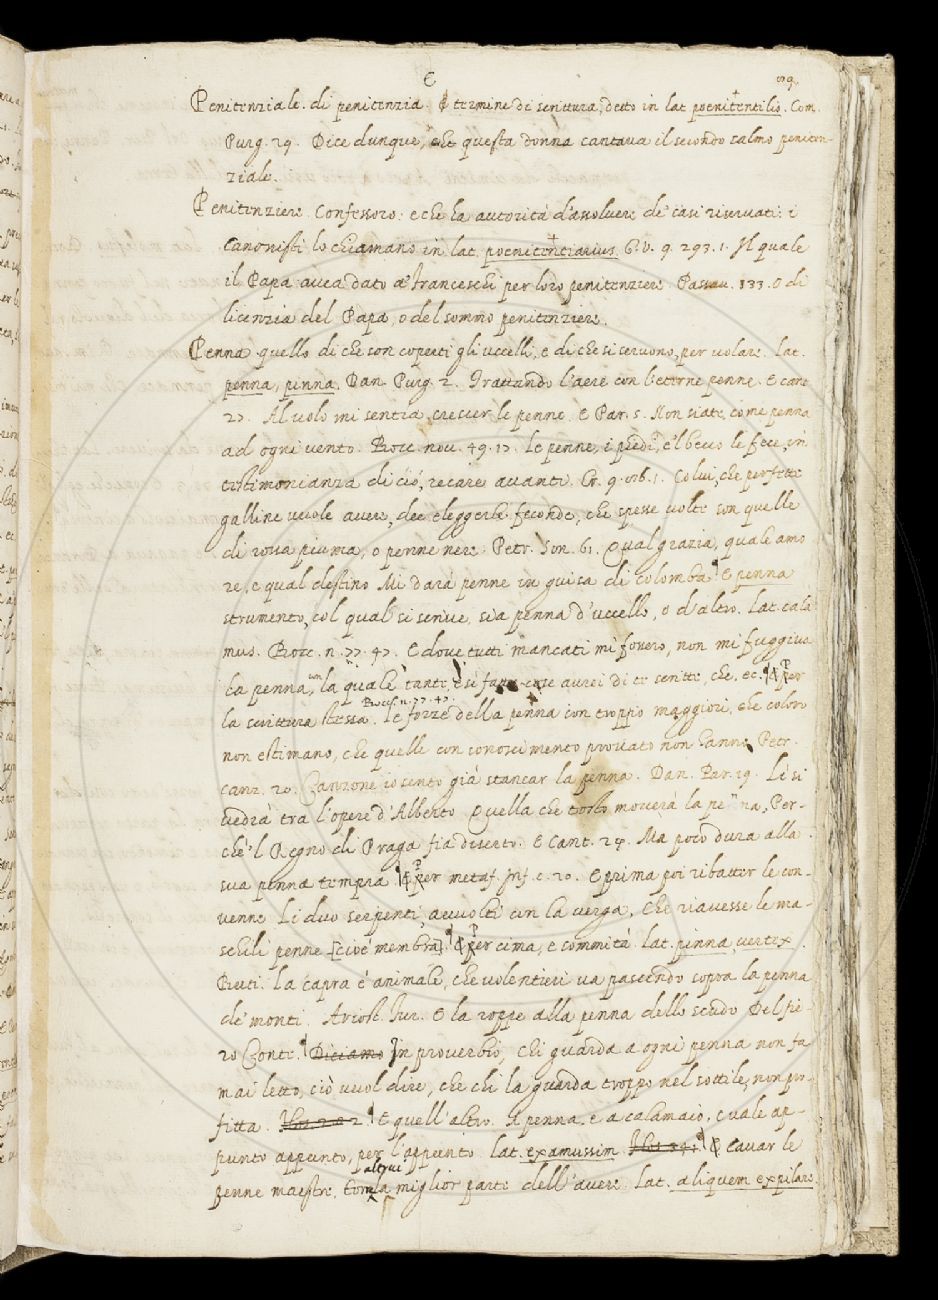 E
Penitenziale. di penitenzia. È termine di scrittura, detto in lat. poenitentilis. Com.
Purg. 29. Dice dunque, che questa donna cantava il secondo salmo peniten-
ziale.
Penitenziere. Confessoro: e che ha autorità d'assolvere de' casi riservati: i
canonisti lo chiamano in lat. poenitentiarius. G. V. 9. 293. 1. Il quale
il Papa avea dato a' Franceschi per loro penitenziere. Passav. 133. O di
licenzia del Papa, o del sommo penitenziere.
Penna quello di che son coperti gli uccelli, e di che si servono, per volare. Lat.
penna, pinna. Dan. Purg. 2. Trattando l'aere con l'eterne penne. E cant.
27. Al volo mi sentia crescer le penne. E Par. 5. Non siate, come penna
ad ogni vento. Bocc. nov. 49. 17. Le penne, i piedi, e'l becco le fece, in
testimonianza di ciò, recare avanti. Cr. 9. 86. 1. Colui, che perfette
galline vuole avere, dee eleggerle feconde, che spesse volte son quelle
di rossa piuma, o penne nere. Petr. Son. 61. Qual grazia, quale amo-
re, e qual destino Mi darà penne in guisa di colomba E penna
strumento, col qual si scrive, sia penna d'uccello, o d'altro. Lat. cala
mus. Bocc. n. 77. 47. E dove tutti mancati mi fossero, non mi fuggiva
la penna, con la quale tante, e sì fatte cose avrei di te scritte, che. ec. E per
la scrittura stessa. Bocc. n. 77. 47. Le forze della penna son troppo maggiori, che coloro
non estimano, che quelle con conoscimento provato non hanno. Petr.
canz. 20. Canzone io sento già stancar la penna. Dan. Par. 19. Lì si
vedrà tra l'opere d'Alberto Quella che tosto moverà la penna, Per-
che'l Regno di Praga fia deserto. E Cant. 24. Ma poco dura alla
sua penna tempra E per metaf. Inf. c. 20. E prima poi ribatter le con-
venne Li duo serpenti, avvolti con la verga, Che riavesse le ma-
schili penne [cioè membra] E per cima, e sommità. Lat. pinna, vertex.
Buti. La capra è animale, che volentieri va pascendo sopra la penna
de' monti. Ariost. Fur. E la roppe alla penna dello scudo Del fie-
ro Conte. Diciamo In proverbio, chi guarda a ogni penna non fa
mai letto, ciò vuol dire, che chi la guarda troppo nel sottile, non pro-
fitta. E quell'altro. A penna, e a calamaio, cvale ap-
punto appunto, per l'appunto. Lat. examussim. E cavar le
penne maestre, torre altrui la miglior parte dell'avere. Lat. aliquem expilare.